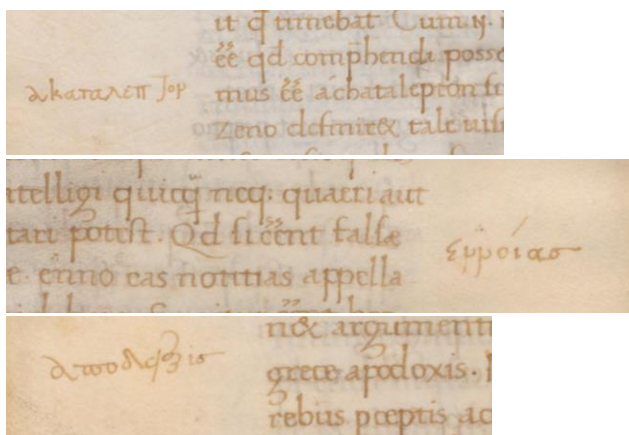 it q̄ timebat Cum N·
e̅e̅ qd comp̄hendi posse
ακαταλεπτορ mus e̅e̅ achatalepton si
zeno definir& tale uis
ntelligi quicq̄ neq· quaeri aut
tari potest. Qd si eent falsae
ευροίασ
e· ennoeas notitias appella
n& argumenti
αποδειξισ grece apodoxis·
rebus pceptis ac